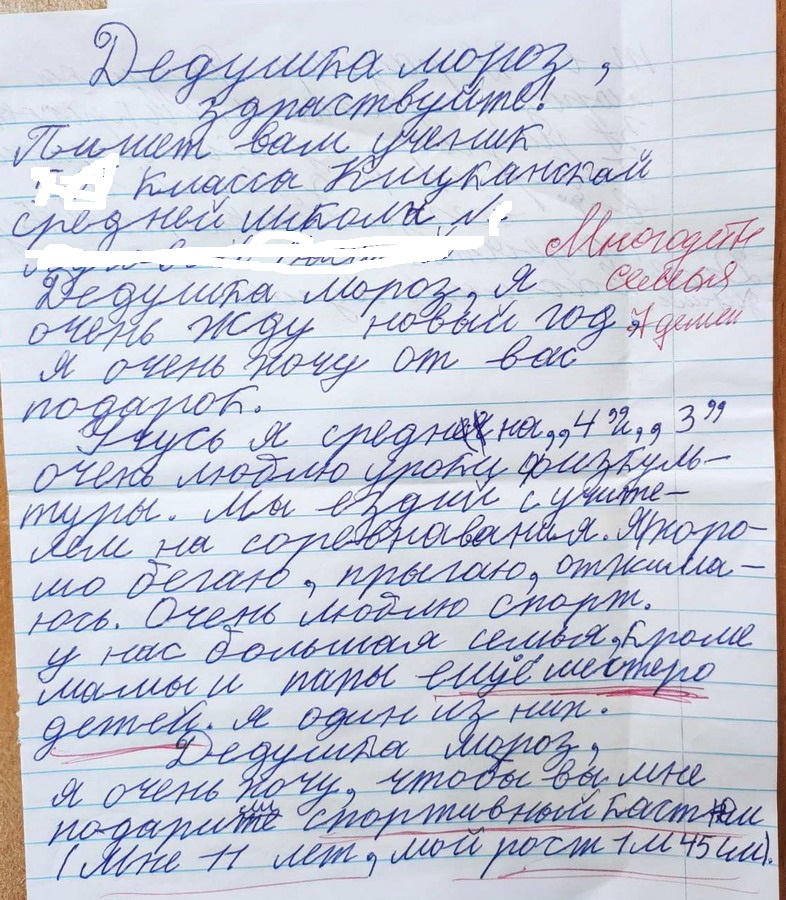 Дедушка мороз,
здраствуйте!
Пишет вам ученик
класса Кицканской
средней школы №
Многодетн
Дедушка мороз, я
семья
очень жду новый год.
7 детей
Я очень хочу от вас
подарок.
Учусь я средне на „4" и „3"
очень люблю уроки физкуль-
туры. Мы ездим с учите-
лем на соревнавания. Я хоро-
шо бегаю, прыгаю, отжима-
юсь. Очень люблю спорт.
у нас большая семья, кроме
мамы и папы ещё шестеро
детей. я один из них.
Дедушка мороз,
я очень хочу, чтобы вы мне
подарили спортивный кастюм
(Мне 11 лет, мой рост 1м 45 см).